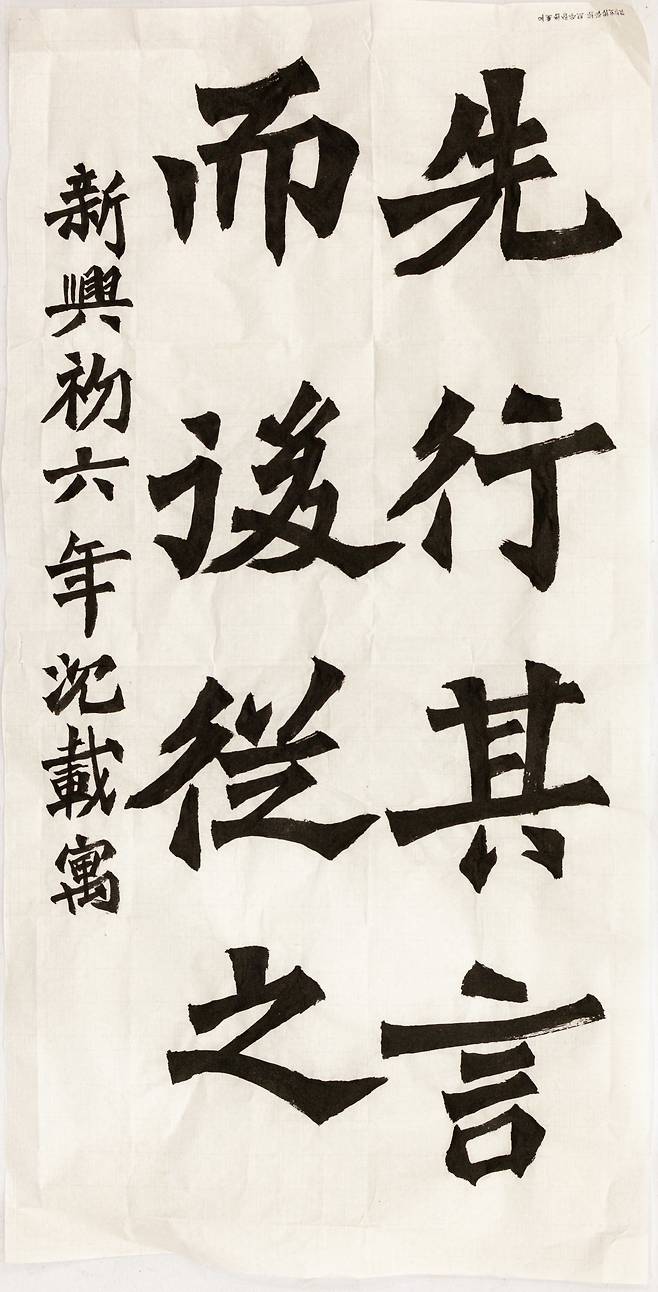 先行其言
而後從之
新興初六年沈載寓